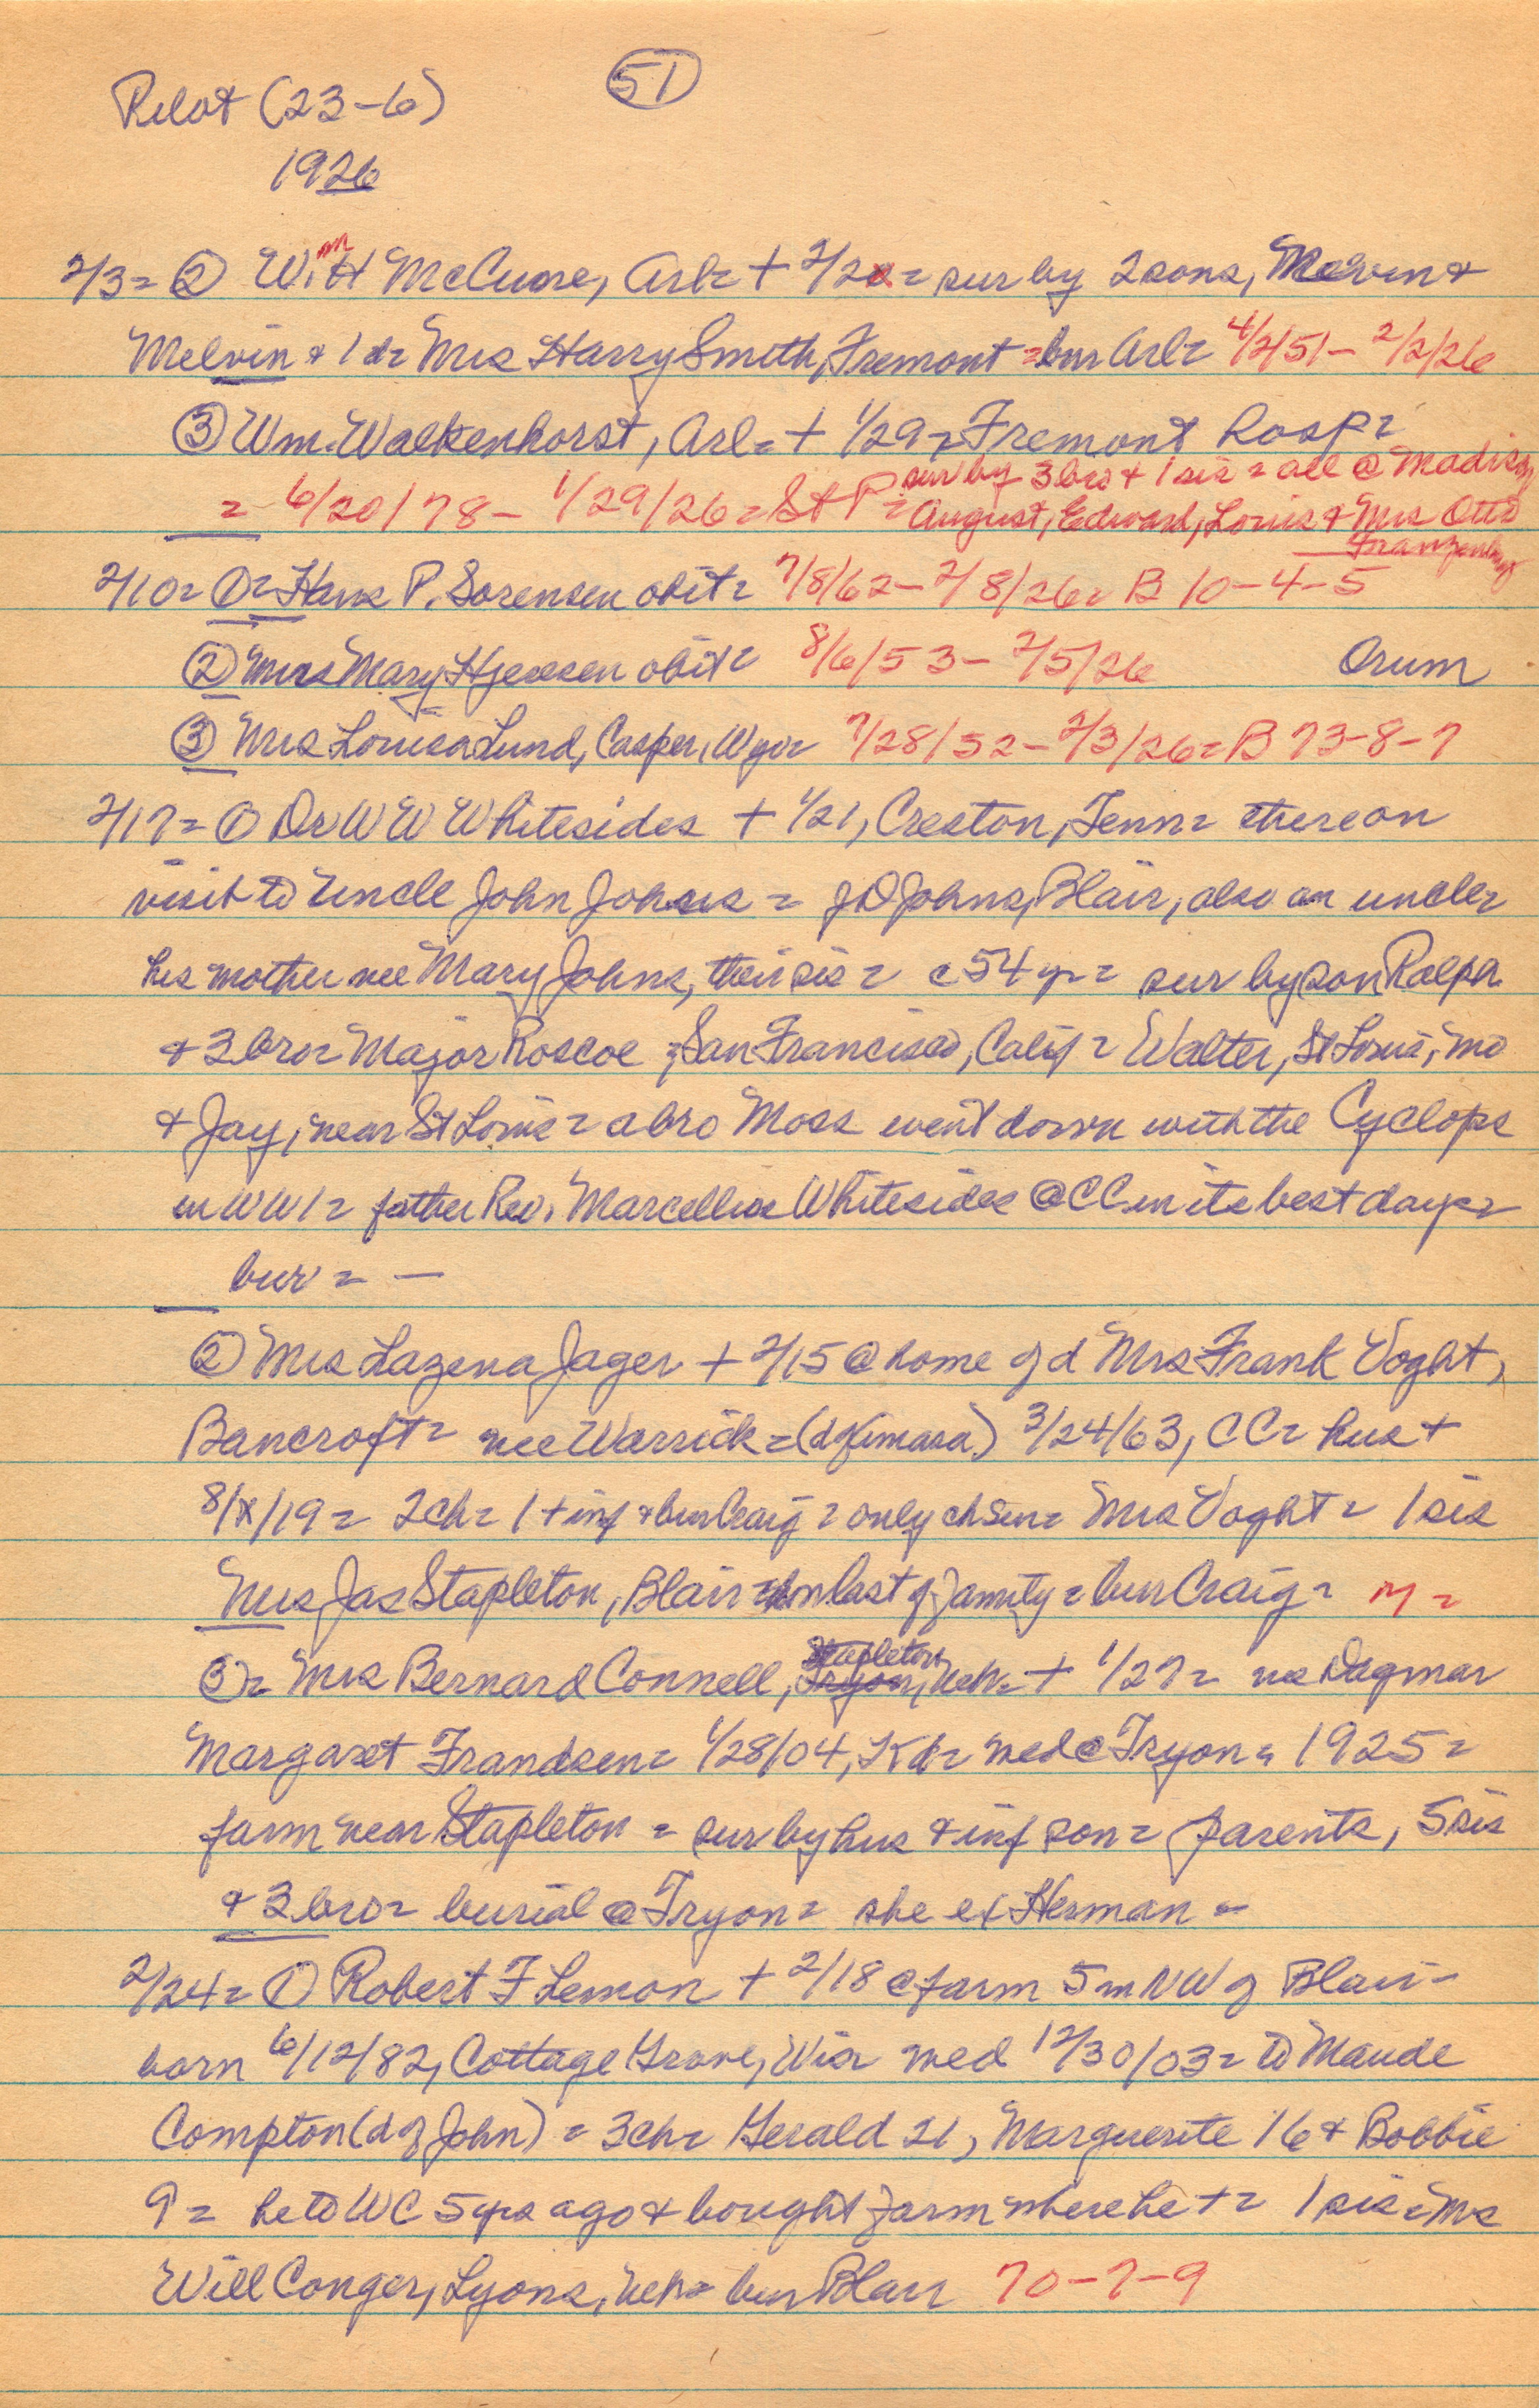 51
Pilot (23-6)
1926
2/3= ② Wm H McCune, Arl= + 2/2= sur by 2 sons, &
Melvin & 1 d= Mrs Harry Smith, Fremont =bur Arl= 4/2/51- 2/2/26
③ Wm. Walkenhorst, Arl= + 1/29= Fremont hosp=
sur by 3 bro & 1 sis = all @ Madison,
= 6/20/78- 1/29/26= St P= August, Edward, Louis & Mrs Otto
2/10= ①= Hans P. Sorensen obit= 7/8/62- 2/8/26= B 10-4-5
② Mrs Mary Hjensen obit= 8/6/53- 2/5/26 Orum
③ Mrs Louisa Lund, Casper, Wyo= 7/28/52- 2/3/26= B 73-8-7
2/17= ① Dr W W Whitesides + 1/21, Creston, Tenn= there on
visit to uncle John Johns = J D Johns, Blair, also an uncle=
his mother nee Mary Johns, their sis = c 54 yr= sur by son Ralph
& 3 bro= Major Roscoe, San Francisco, Calif = Walter, St Louis, Mo
& Jay, near St Louis = a bro Moss went down with the Cyclops
in WW1 = father Rev. Marcellus Whitesides @ CC in its best days=
bur = —
② Mrs Lazena Jager + 2/15 @ home of d Mrs Frank Voght,
Bancroft= nee Warrick = (d of Kimasa) 3/24/63, CC= hus +
8/x/19 = 2 ch= 1 + inf & bur Craig = only ch sur= Mrs Voght = 1 sis
Mrs Jas Stapleton, Blair = last of family = bur Craig = M =
③= Mrs Bernard Connell, Stapleton, Neb= + 1/27= nee Dagmar
Margaret Frandsen= 1/28/04, Kd= med @ Tryon = 1925=
farm near Stapleton = sur by hus & inf son = parents, 5 sis
& 3 bro= burial @ Tryon= she ex Herman =
2/24= ① Robert F Lemon + 2/18 @ farm 5 m NW of Blair-
born 6/12/82, Cottage Grove, Wis= med 12/30/03= to Maude
Compton (d of John) = 3 ch= Gerald 21, Marguerite 16 & Bobbie
9= he to WC 5 yrs ago & bought farm where he += 1 sis= Mrs
Will Conger, Lyons, Neb= bur Blair 70-7-9